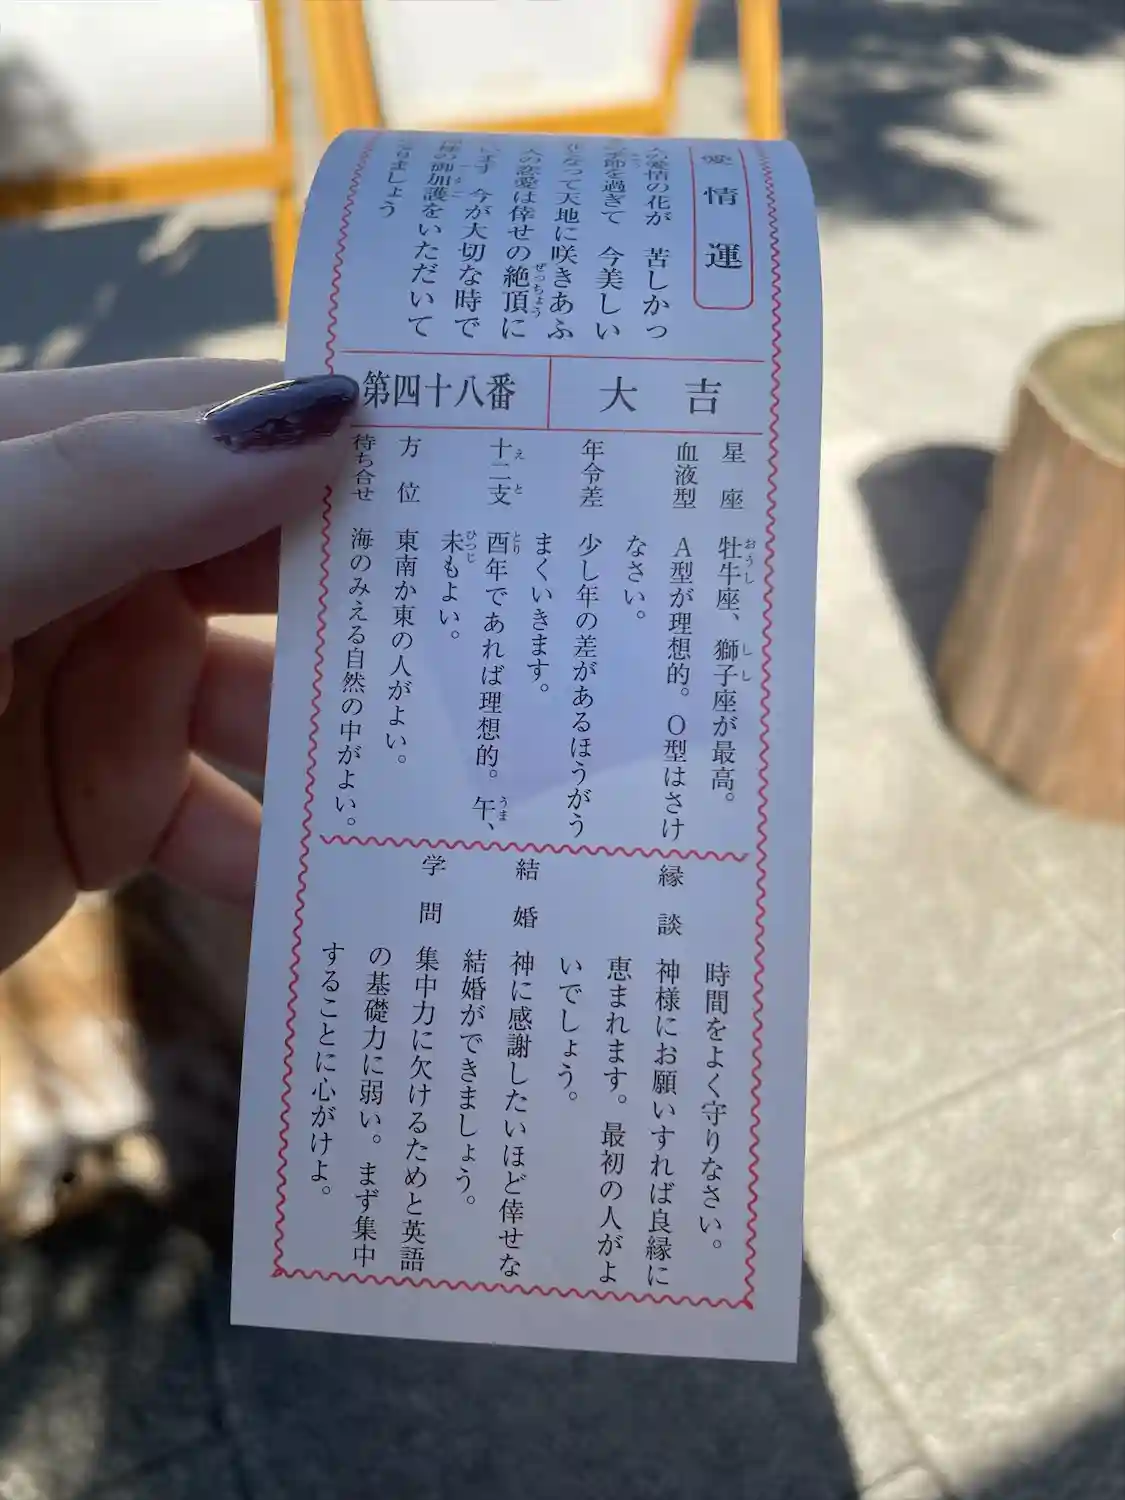 愛情運
の愛情の花が 苦しかっ
を過ぎて 今美しい
なって天地に咲きあふ
の恋愛は倖せの絶頂に
ぜっちょう
います 今が大切な時で
の御加護をいただいて
りましょう
大吉
第四十八番
星座 牡牛座、獅子座が最高。
おうし しし
血液型 A型が理想的。O型はさけ
なさい。
年令差 少し年の差があるほうがう
まくいきます。
十二支 酉年であれば理想的。午、
えと とり うま
未もよい。
ひつじ
方位 東南か東の人がよい。
待ち合せ 海のみえる自然の中がよい。
時間をよく守りなさい。
縁談 神様にお願いすれば良縁に
恵まれます。最初の人がよ
いでしょう。
結婚 神に感謝したいほど倖せな
結婚ができましょう。
学問 集中力に欠けるためと英語
の基礎力に弱い。まず集中
することに心がけよ。